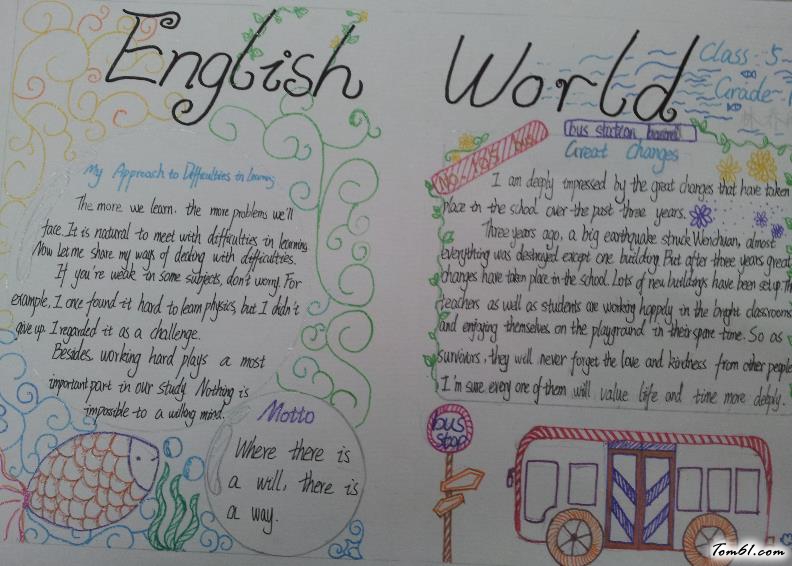 English World
Class 5
Grade
bus station board
Great Changes
My Approach to Difficulties in Learning
The more we learn. the more problems we'll
face. It is natural to meet with difficulties in learning.
Now let me share my ways of dealing with difficulties.
If you're weak in some subjects, don't worry. For
example, I once found it hard to learn physics, but I didn't
give up. I regarded it as a challenge.
Besides, working hard plays a most
important part in our study. Nothing is
impossible to a willing mind.
Motto
Where there is
a will, there is
a way.
I am deeply impressed by the great changes that have taken
place in the school over the past three years.
Three years ago, a big earthquake struck Wenchuan, almost
everything was destroyed except one building. But after three years great
changes have taken place in the school. Lots of new buildings have been set up. The
teachers as well as students are working happily in the bright classrooms
and enjoying themselves on the playground in their spare time. So as
survivors, they will never forget the love and kindness from other people
I'm sure every one of them will value life and time more deeply.
bus
stop
Tom61.com